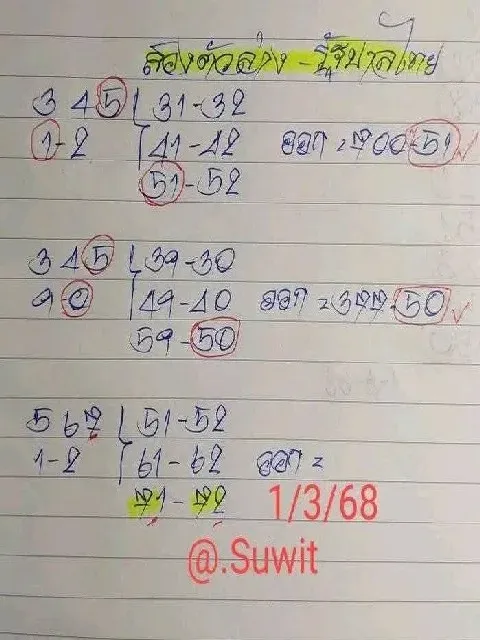 สองตัวล่าง - รัฐบาลไทย
3 4 5 31-32
1-2 41-42 ออก = 700-51
51-52
3 4 5 39-30
9-0 49-40 ออก = 377-50
59-50
5 6 7 51-52
1-2 61-62 ออก =
71-72
1/3/68
@.Suwit